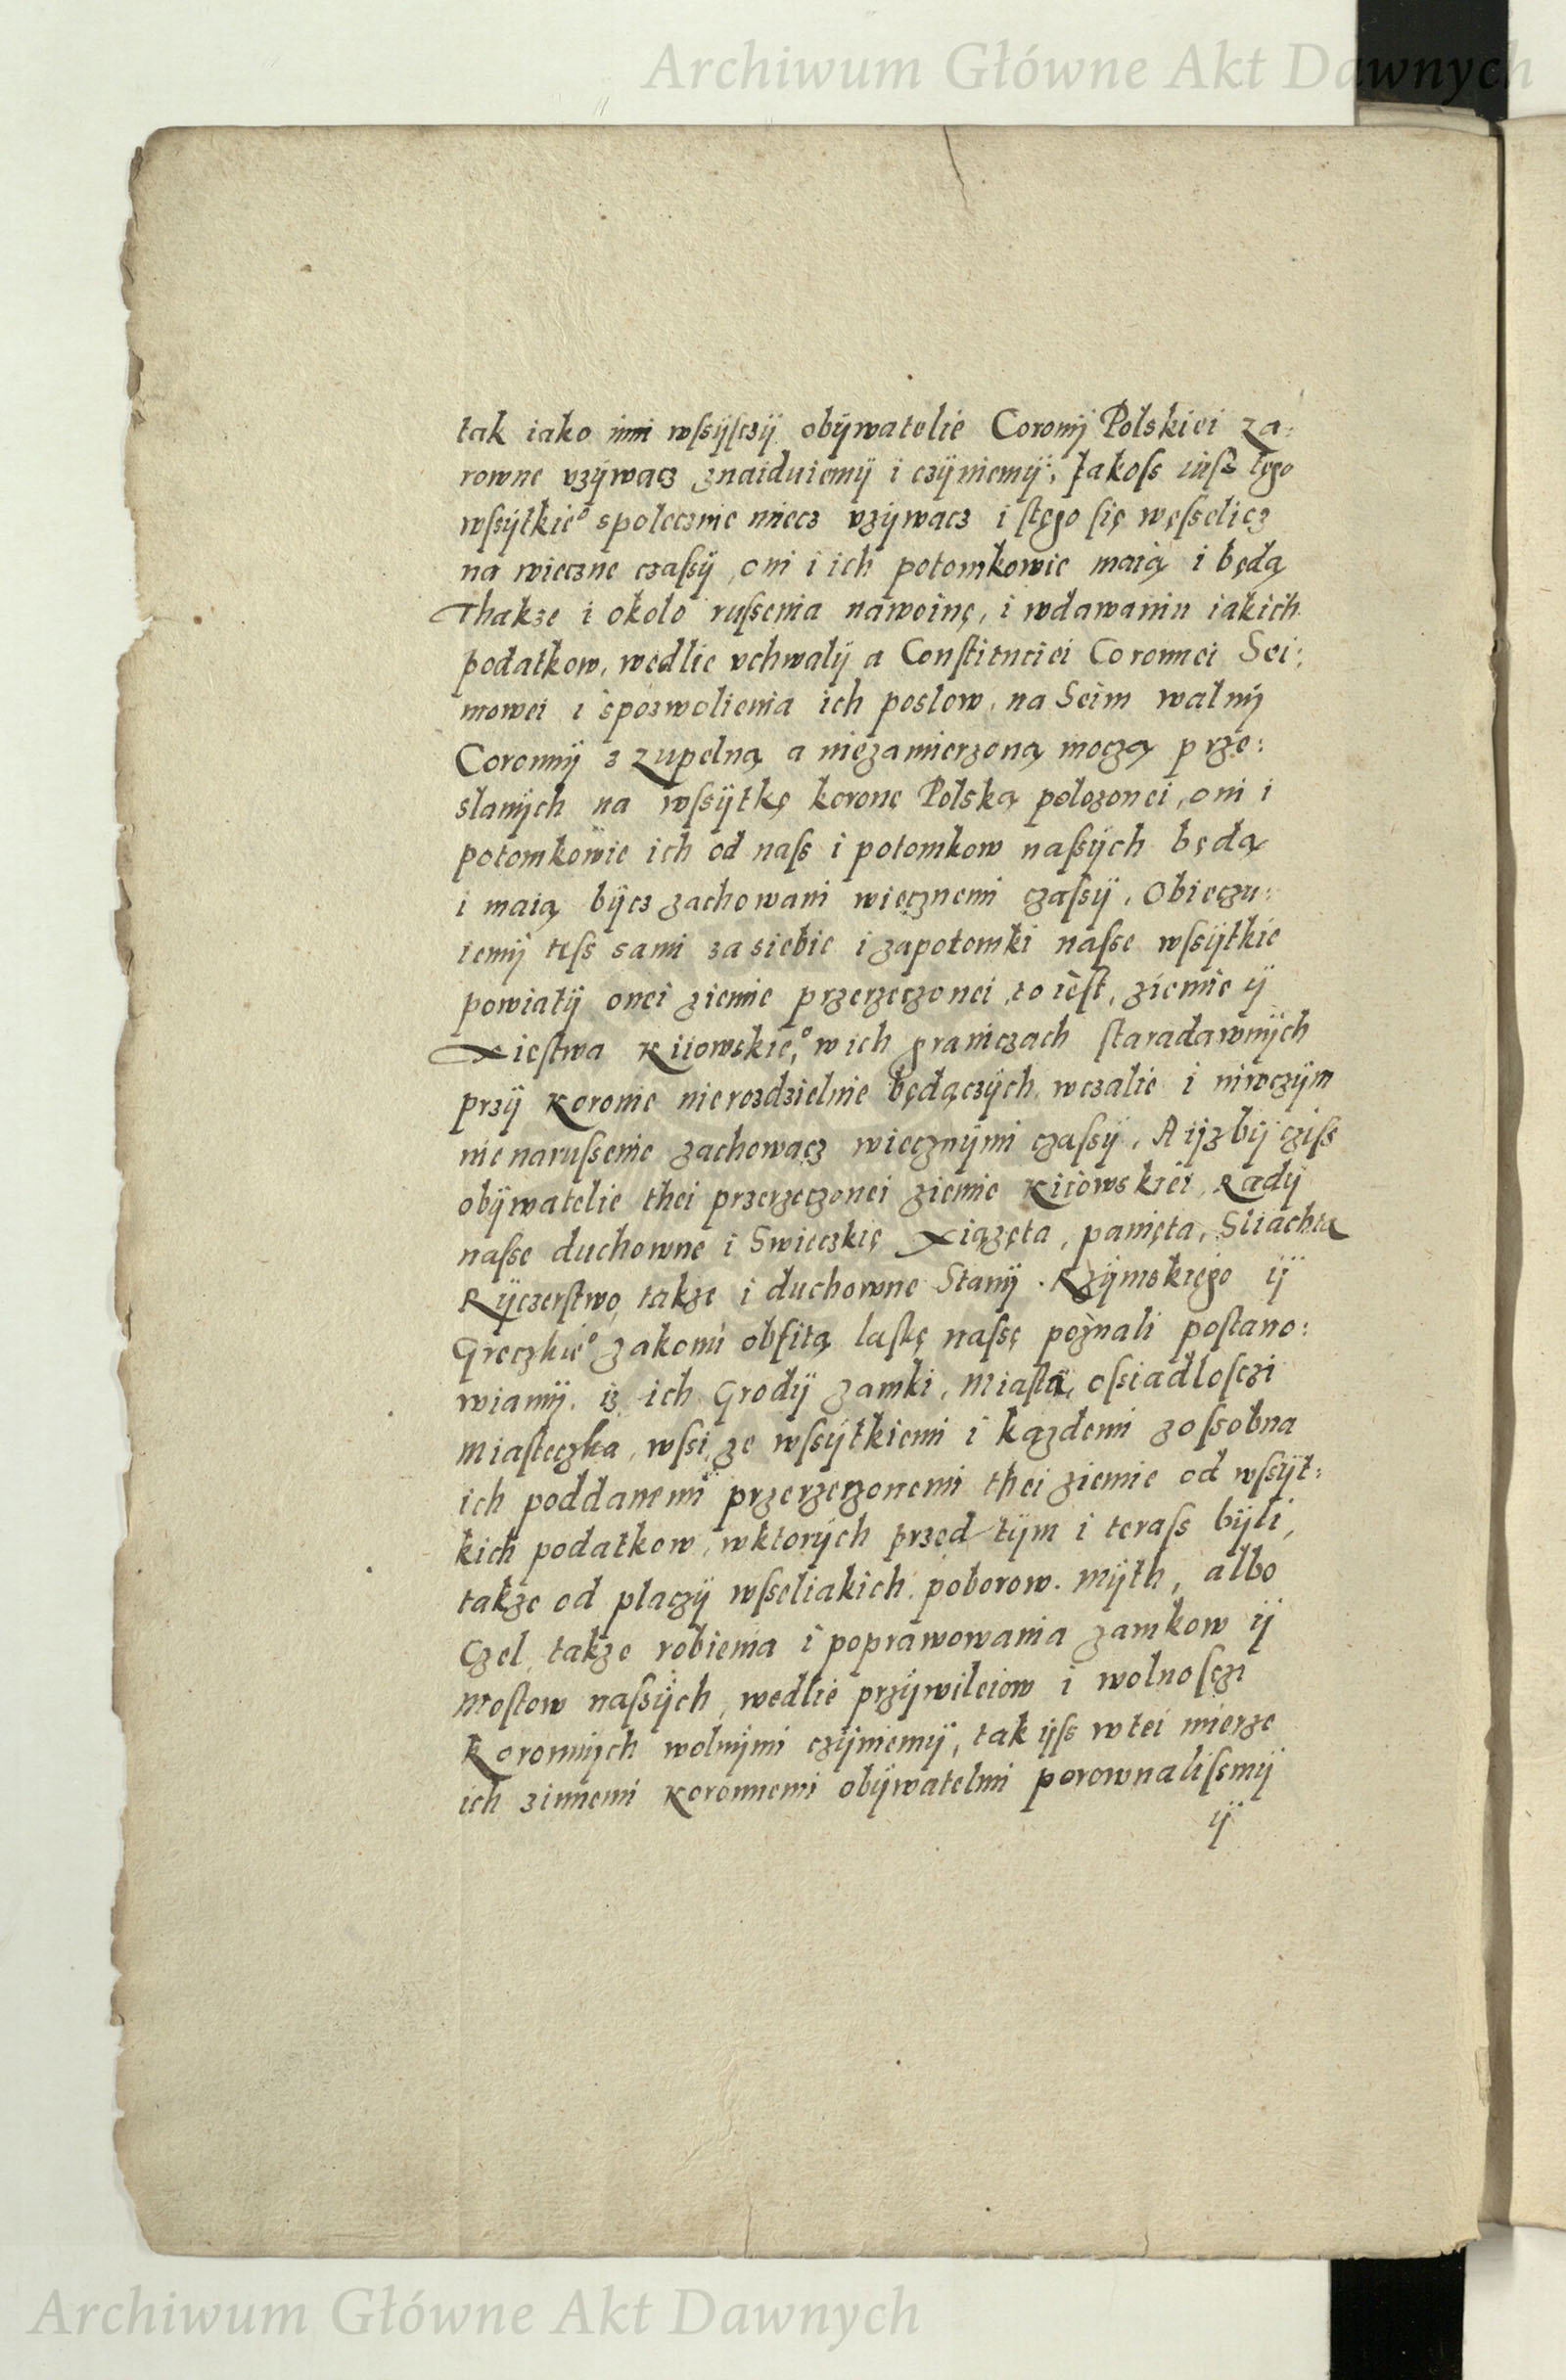 Archiwum Główne Akt Dawnych
tak iako inni wſsÿſczÿ obÿwatelie Coronÿ Polskiei za:
rowne vzÿwacz znaiduiemÿ i czÿniemÿ, Jakoſs iuſs tego
wſsÿtkie° spolecznie miecz vzÿwacz i ſtego się węſselicz
na wieczne czaſsÿ, oni i ich potomkowie maią i będą
Thakze i około ruſsenia nawoinę, i wdawaniu iakich
podatkow, wedlie vchwalÿ a Conſtituciei Coronnei Sei:
mowei i spozwolienia ich poslow, na Seim walnÿ
Coronnÿ z zupelną a niezamierzoną moczą prze:
slanÿch na wſsÿtkę koronę Polską polozonei, oni i
potomkowie ich od naſs i potomkow naſsÿch będą
i maią bÿcz zachowani wiecznemi czaſsÿ. Obieczu:
iemÿ teſs sami za siebie i zapotomki naſse wſsÿtkie
powiatÿ onei ziemie przerzeczonei to ieſt, ziemie ÿ
Xieſtwa Kiiowskie°, w ich graniczach ſtaradawnÿch
przÿ Koronie nierozdzielnie będączÿch wczalie i niwczÿm
nie naruſsenie zachowacz wiecznÿmi czaſsÿ. A ÿzbÿ cziſs
obÿwatelie thei przerzeczonei ziemie Kiiowskiei, Radÿ
naſse duchowne i Swieczkię Xiązęta, panięta, Sliachta
Rÿczerſtwo, takze i duchowne Stanÿ. Rzÿmskiego ÿ
Greczkie° zakonu obfitą laſkę naſsę poznali poſtano:
wiamÿ. iz ich Grodÿ zamki, Miaſta, oſsiadloſczi
Miaſteczka, wſsi, ze wſsÿtkiemi i kązdemi zoſsobna
ich poddanemi przerzeczonemi thei ziemie od wſsÿt:
kich podatkow, wktorÿch przed tÿm i teraſs bÿli,
takze od placzÿ wſseliakich poborow. Mÿth, albo
Czel, takze robienia i poprawowania zamkow ÿ
Moſtow naſsÿch, wedlie przÿwileiow i wolnoſczi
Koronnÿch wolnÿmi czÿniemÿ, tak ÿſs wtei mierze
ich zinnemi Koronnemi obÿwatelmi porownaliſsmÿ
ÿ
Archiwum Główne Akt Dawnych